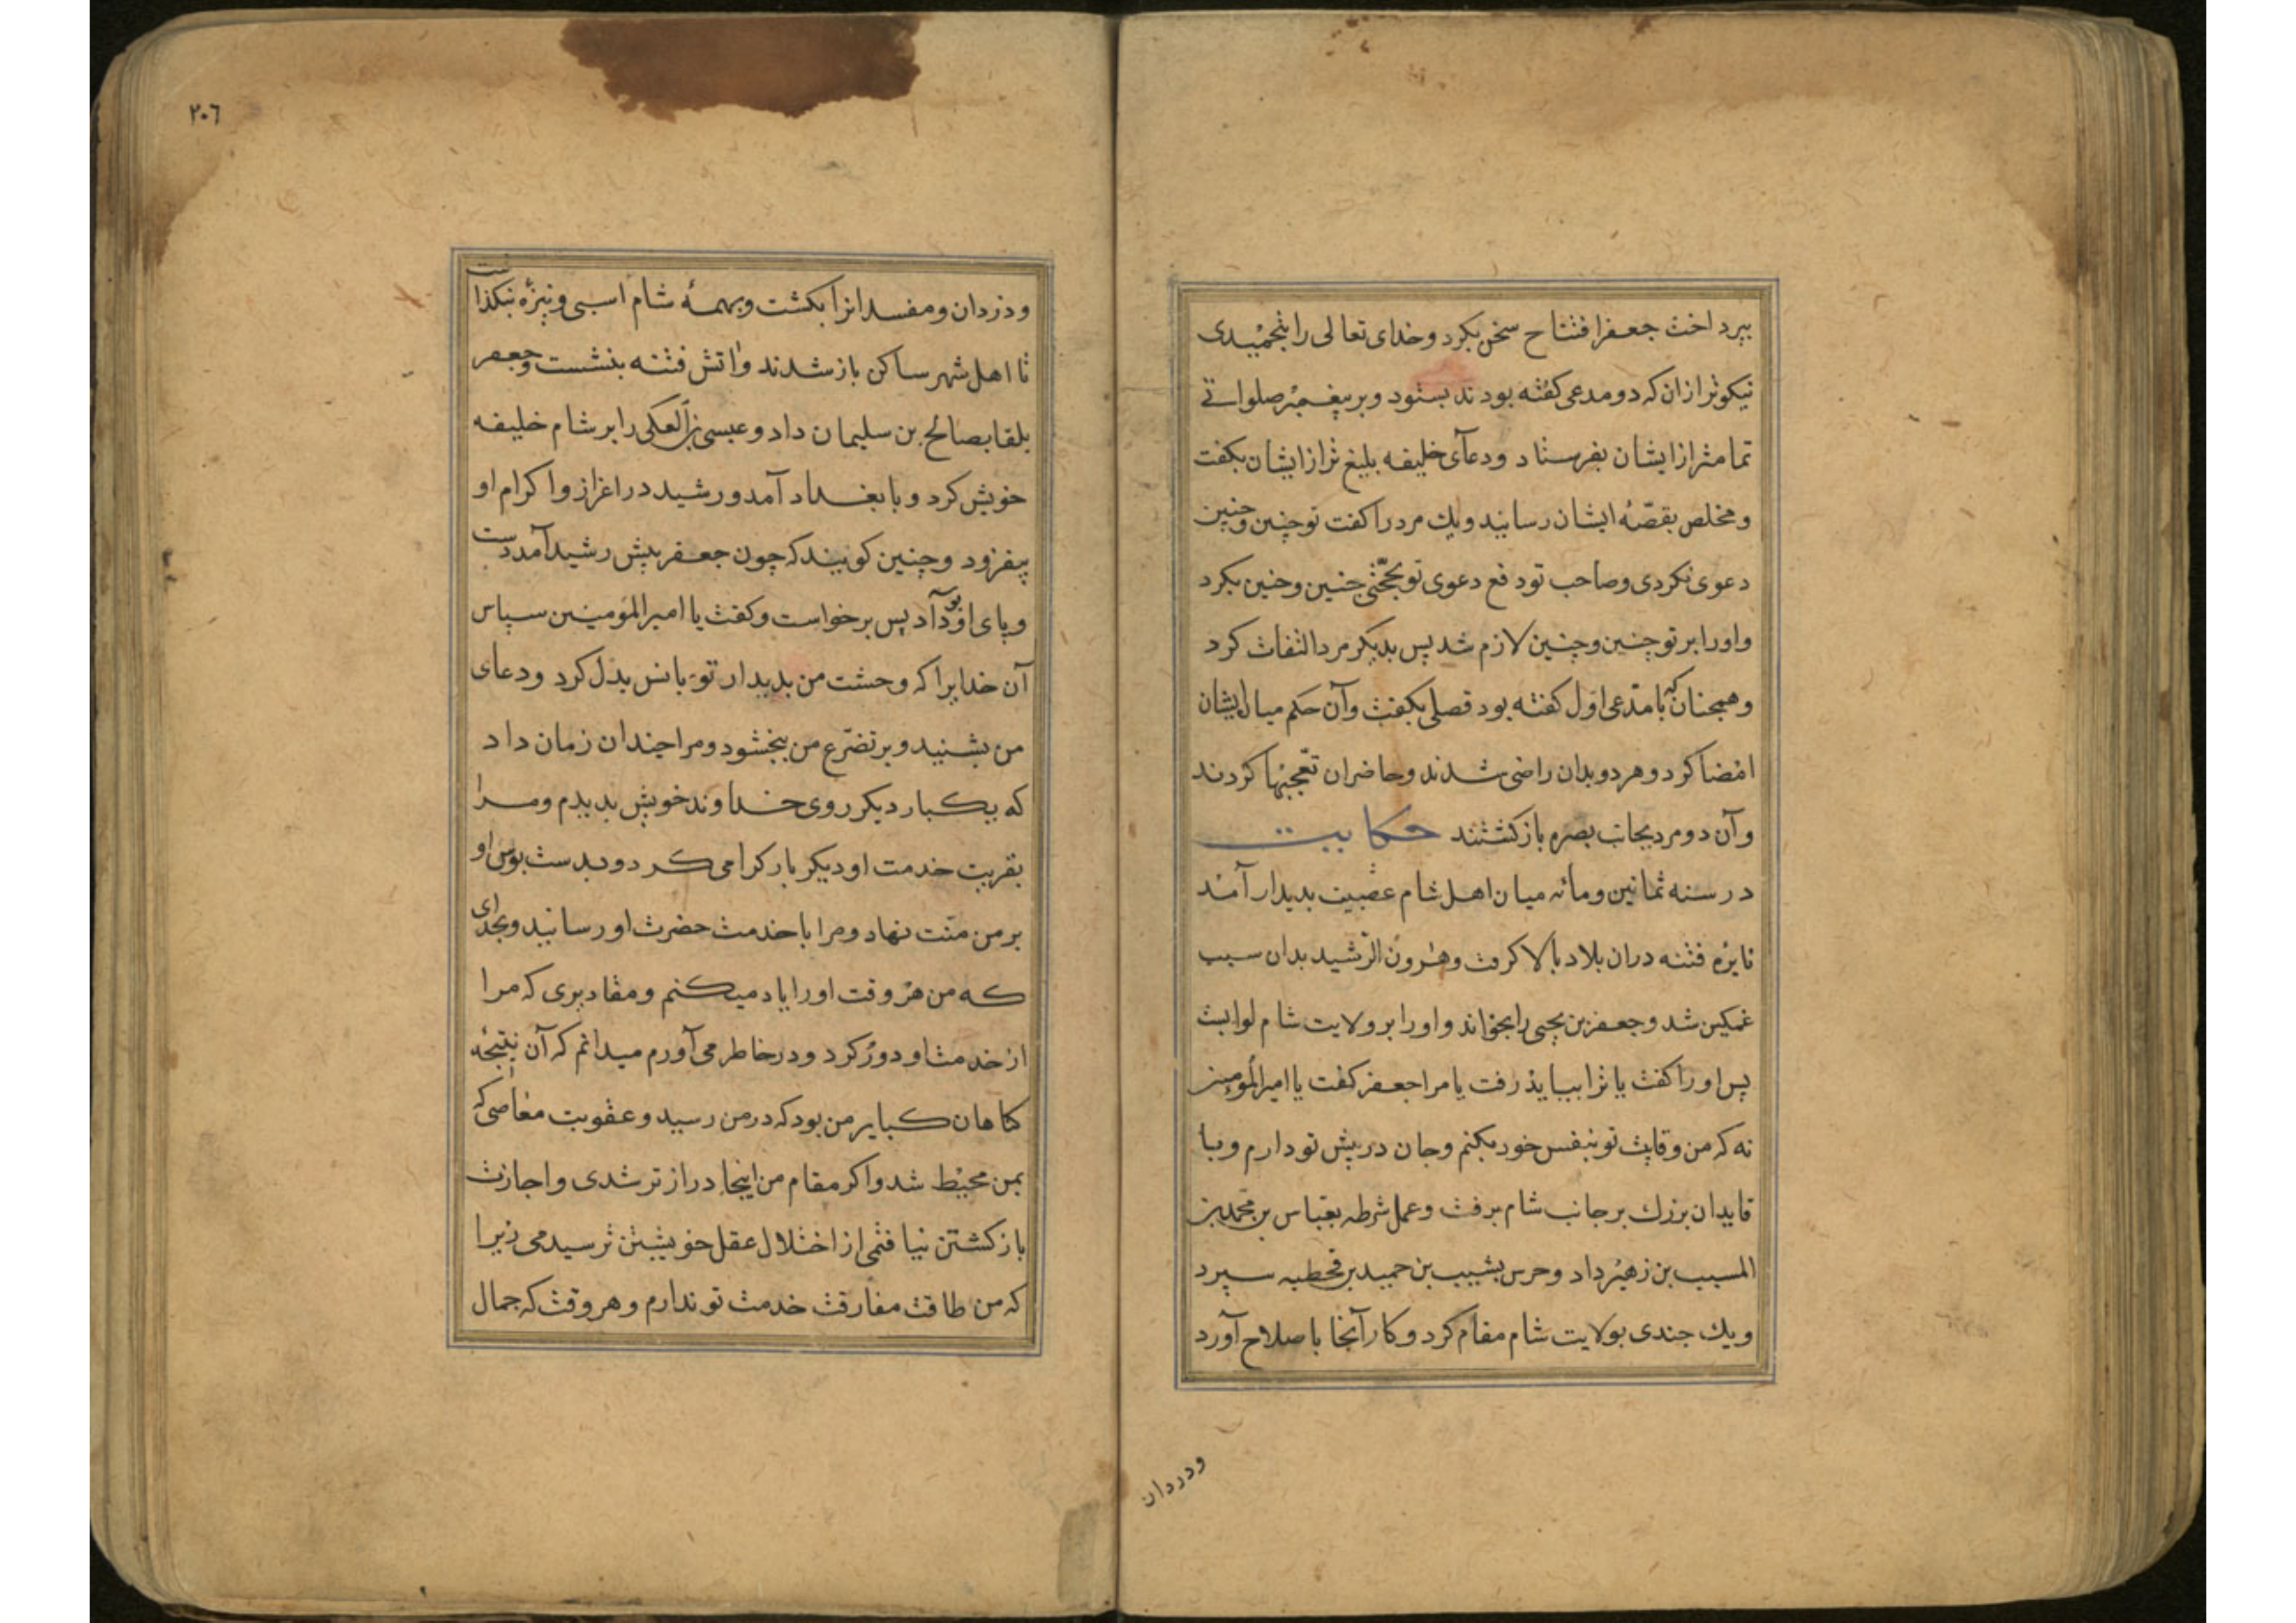 بپرداخت جعفر افتتاح سخن بکرد و خدای تعالی را بتحمیدی
نیکوتر ازان که دو مدعی کفته بودند بستود و بر پیغمبر صلواتی
تمامتر از ایشان بفرستاد و دعآی خلیفه بلیغ تر از ایشان بکفت
و مخلص بقصّهٔ ایشان رسانید و یك مرد را کفت تو چنین و چنین
دعوی کردی و صاحب تو دفع دعوی تو بحجّتی چنین و چنین بکرد
و او را بر تو چنین و چنین لازم شد پس بدیکر مرد التفات کرد
و همچنانکه با مدّعی اوّل کفته بود فصلی بکفت و آن حکم میان ایشان
امضا کرد و هر دو بدان راضی شدند و حاضران تعجّبها کردند
و آن دو مرد بجانب بصره باز کشتند حکایت
در سنه ثمانین و مائه میان اهل شام عصبیت بدیدار آمد
نایرهٔ فتنه دران بلاد بالا کرفت و هرون الرّشید بدان سبب
غمکین شد و جعفر بن یحیی را بخواند و او را بر ولایت شام لوا بست
پس او را کفت یا ترا بباید رفت یا مرا جعفر کفت یا امیر المؤمنین
نه که من وقایت تو بنفس خود بکنم و جان در پیش تو دارم و با
قایدان بزرك بر جانب شام برفت و عمل شرطه بعباس بن محمد بن
المسیب بن زهیر داد و حرس بشبیب بن حمید بن قحطبه سپرد
و یك چندی بولایت شام مقام کرد و کار آنجا باصلاح آورد
ودردان
٢٠٦
و دزدان و مفسدانرا بکشت و بهمهٔ شام اسبی و نیزهٔ نبکذاشت
تا اهل شهر ساکن باز شدند و آتش فتنه بنشست و جعفر
بلقا بصالح بن سلیمان داد و عیسی بن العکی را بر شام خلیفه
خویش کرد و با بغداد آمد و رشید در اعزاز و اکرام او
بیفزود و چنین کویند که چون جعفر پیش رشید آمد دست
و پای او بوسداد پس برخواست و کفت یا امیر المؤمنین سپاس
آن خدایرا که وحشت من بدیدار تو بانس بدل کرد و دعای
من بشنید و بر تضرّع من ببخشود و مرا چندان زمان داد
که یکبار دیکر روی خداوند خویش بدیدم و مرا
بقربت خدمت او دیکر بار کرامی کرد و بدست بوس او
بر من منّت نهاد و مرا با خدمت حضرت او رسانید و بخدای
که من هر وقت او را یاد میکنم و مقادیری که مرا
از خدمت او دور کرد و در خاطر می آورم میدانم که آن نتیجهٔ
کناهان کبایر من بود که در من رسید و عقوبت معاصی که
بمن محیط شد و اکر مقام من اینجا دراز تر شدی و اجازت
باز کشتن نیافتمی از اختلال عقل خویشتن ترسیدمی زیرا
که من طاقت مفارقت خدمت تو ندارم و هر وقت که جمال